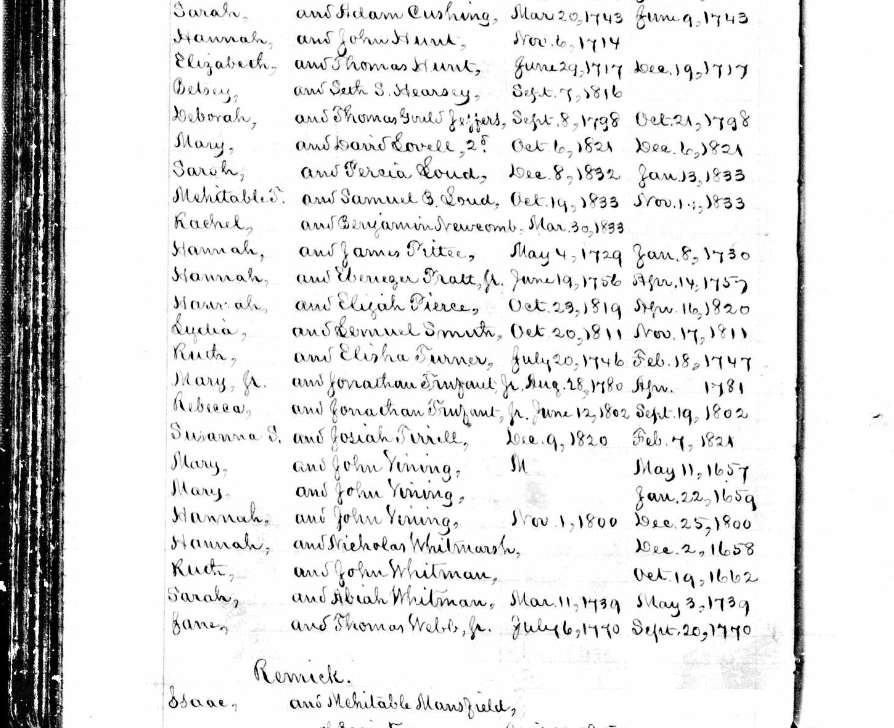 Sarah, and Adam Cushing, Mar 20, 1743 June 9, 1743
Hannah, and John Hunt, Nov. 6, 1714
Elizabeth, and Thomas Hunt, June 29, 1717 Dec. 19, 1717
Betsey, and Seth S. Hearsey, Sept. 7, 1816
Deborah, and Thomas Gould Jeffers, Sept. 8, 1798 Oct. 21, 1798
Mary, and David Lovell, 2d Oct 6, 1821 Dec. 6, 1821
Sarah, and Percia Loud, Dec. 8, 1832 Jan. 13, 1833
Mehitable T. and Samuel B. Loud, Oct. 19, 1833 Nov. 1833
Rachel, and Benjamin Newcomb. Mar. 30, 1833
Hannah, and James Pittee, May 4, 1729 Jan. 8, 1730
Hannah, and Ebenezer Pratt, Jr. June 19, 1756 Apr. 14, 1757
Hannah, and Elijah Pierce, Oct. 23, 1819 Apr. 16, 1820
Lydia, and Lemuel Smith, Oct 20, 1811 Nov. 17, 1811
Ruth, and Elisha Turner, July 20, 1746 Feb. 18, 1747
Mary, Jr. and Jonathan Trufant, Jr. Aug. 28, 1780 Apr. 1781
Rebecca, and Jonathan Trufant, Jr. June 12, 1802 Sept. 19, 1802
Susanna S. and Josiah Tirrell, Dec. 9, 1820 Feb. 7, 1821
Mary, and John Vining, M May 11, 1657
Mary, and John Vining, Jan. 22, 1659
Hannah, and John Vining, Nov. 1, 1800 Dec. 25, 1800
Hannah, and Nicholas Whitmarsh, Dec. 2, 1658
Ruth, and John Whitman, Oct. 19, 1662
Sarah, and Abiah Whitman, Mar. 11, 1739 May 3, 1739
Jane, and Thomas Webb, Jr. July 6, 1770 Sept. 20, 1770
Remick.
Isaac, and Mehitable Mansfield,